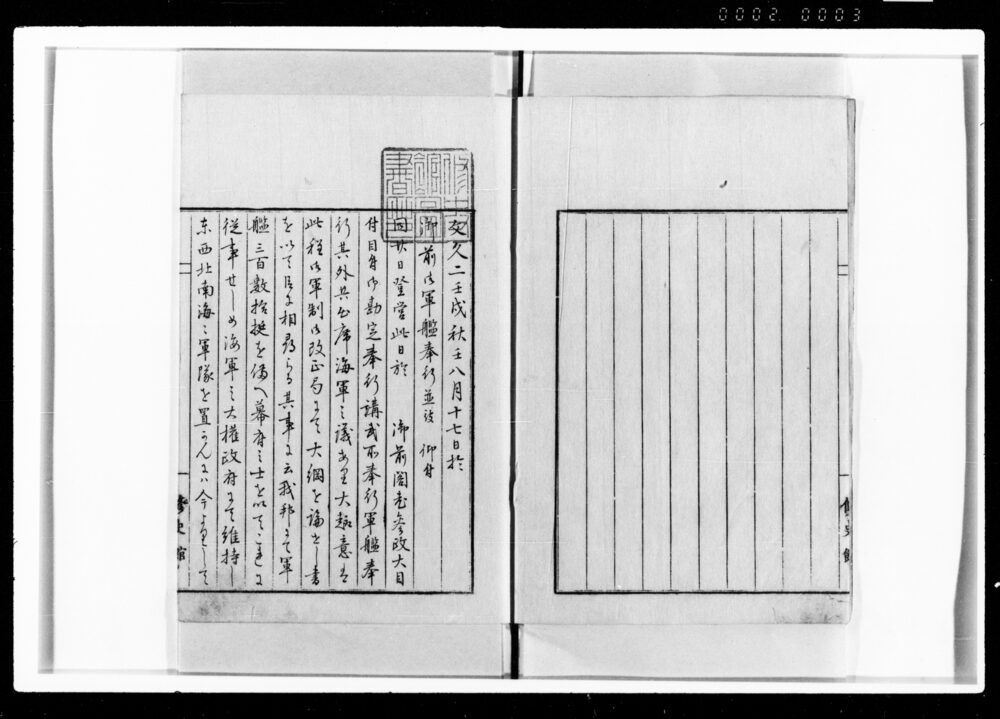 0002 0003
文久二壬戌秋壬八月十七日於
御前御軍艦奉行並被 仰付
同廿日登営此日於 御前閣老参政大目
付目付御勘定奉行講武所奉行軍艦奉
行其外共出席海軍之議あり大趣意は
此程御軍制御改正局にて大綱を論せし書
を以て以下に相尋らる其事に云我邦にて軍
艦三百数拾挺を備へ幕府之士を以てこれに
従事せしめ海軍之大権政府にて維持し
東西北南海に軍隊を置かんには今よりして
修史館
修史館